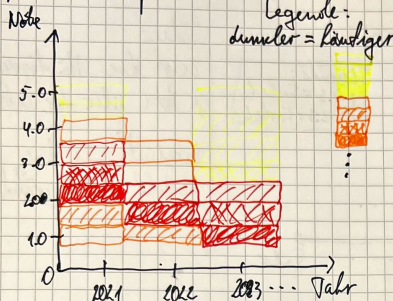 Note
Legende:
dunkler = häufiger
5.0
4.0
3.0
2.0
1.0
0
2021 2022 2023 ... Jahr